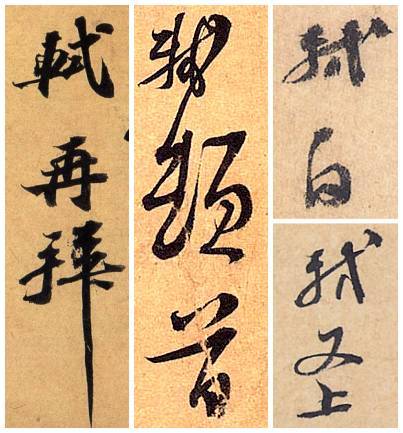 軾再拜
軾頓首
軾白
軾又上